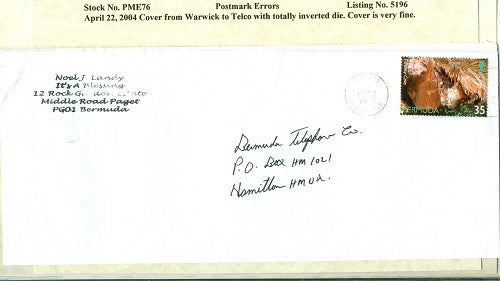 Stock No. PME76 Postmark Errors Listing No. 5196
April 22, 2004 Cover from Warwick to Telco with totally inverted die. Cover is very fine.
Noel J. Landy
It's A Blessing
12 Rock
Middle Road Paget
PG01 Bermuda
BERMUDA 35
Bermuda Telephone Co.
P.O. Box HM 1021
Hamilton HM